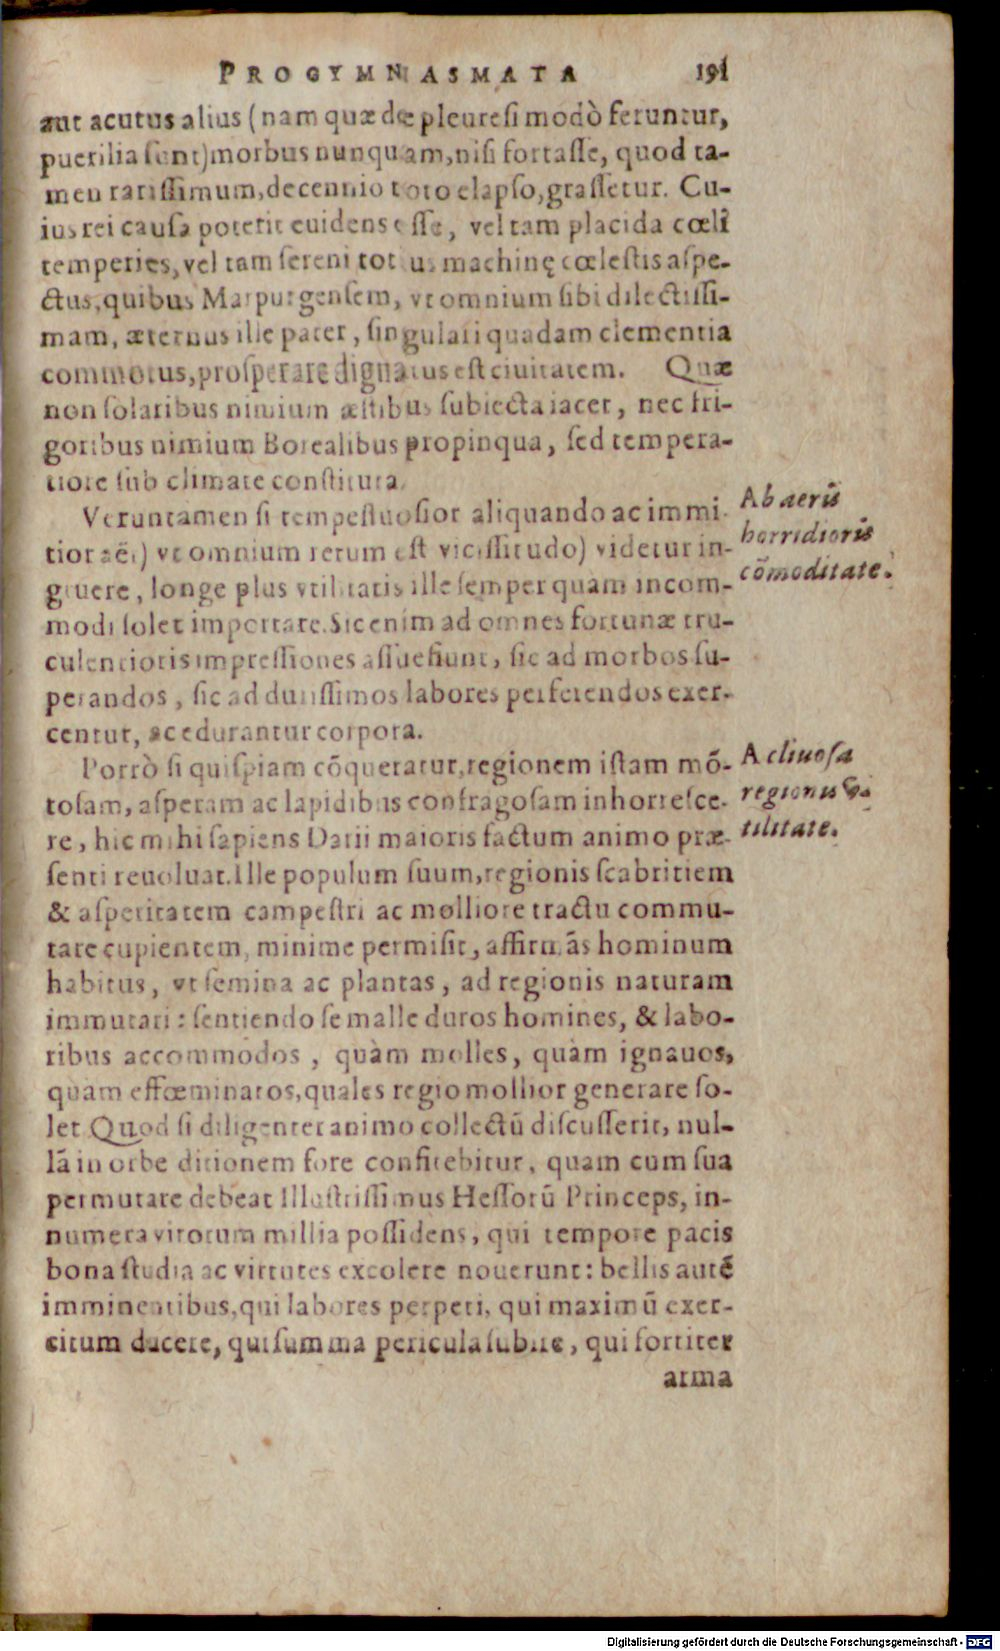 PROGYMNASMATA 191
aut acutus alius (nam quæ de pleuresi modò feruntur,
puerilia sunt) morbus nunquam, nisi fortasse, quod ta-
men rarissimum, decennio toto elapso, grassetur. Cu-
ius rei causa poterit euidens esse, vel tam placida cœli
temperies, vel tam sereni totius machinę cœlestis aspe-
ctus, quibus Marpurgensem, vt omnium sibi dilectissi-
mam, æternus ille pater, singulari quadam clementia
commotus, prosperare dignatus est ciuitatem. Quæ
non solaribus nimium æstibus subiecta iacet, nec fri-
goribus nimium Borealibus propinqua, sed tempera-
tiore sub climate constituta.
Veruntamen si tempestuosior aliquando ac immi-
tior aër) vt omnium rerum est vicissitudo) videtur in-
gruere, longe plus vtilitatis ille semper quàm incom-
modi solet importare. Sic enim ad omnes fortunæ tru-
culentioris impressiones assuefiunt, sic ad morbos su-
perandos, sic ad durissimos labores perferendos exer-
centur, ac edurantur corpora.
Ab aeris
horridioris
cōmoditate.
Porrò si quispiam cōqueratur, regionem istam mō-
tosam, asperam ac lapidibus confragosam inhorresce-
re, hic mihi sapiens Darii maioris factum animo præ-
senti reuoluat. Ille populum suum, regionis scabritiem
& asperitatem campestri ac molliore tractu commu-
tare cupientem, minime permisit, affirmās hominum
habitus, vt semina ac plantas, ad regionis naturam
immutari: sentiendo se malle duros homines, & labo-
ribus accommodos, quàm molles, quàm ignauos,
quàm effœminatos, quales regio mollior generare so-
let Quod si diligenter animo collectū discusserit, nul-
lā in orbe ditionem fore confitebitur, quam cum sua
permutare debeat Illustrissimus Hessorū Princeps, in-
numera virorum millia possidens, qui tempore pacis
bona studia ac virtutes excolere nouerunt: bellis autē
imminentibus, qui labores perpeti, qui maximū exer-
citum ducere, qui summa pericula subire, qui fortiter
arma
A cliuosa
regionis v-
tilitate.
Digitalisierung gefördert durch die Deutsche Forschungsgemeinschaft - DFG